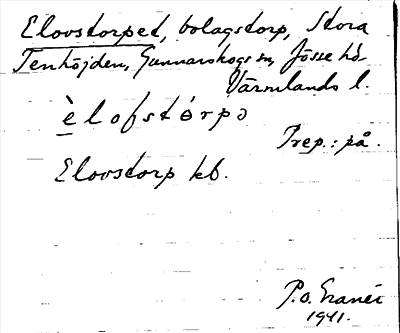 Elovstorpet, bolagstorp, Stora
Tenhöjden, Gunnarskogs sn, Jösse hd.
Värmlands l.
èlofstórpə
Prep.: på.
Elovstorp kb.
P.O. Granér
1941.